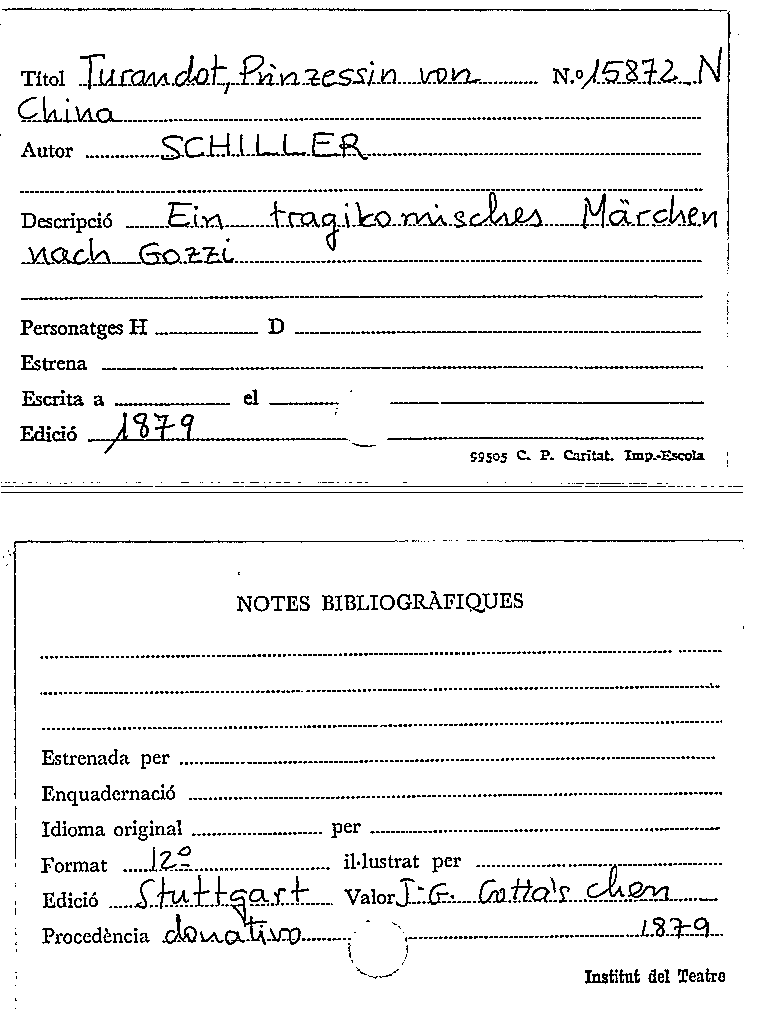 Títol Turandot, Prinzessin von N.º 15872 N
China
Autor SCHILLER
Descripció Ein tragikomisches Märchen
nach Gozzi
Personatges H D
Estrena
Escrita a el
Edició 1879
99505 C. P. Caritat. Imp.-Escola
NOTES BIBLIOGRÀFIQUES
Estrenada per
Enquadernació
Idioma original per
Format 12º il·lustrat per
Edició Stuttgart Valor J-G. Cotta's chen
Procedència donativo 1879
Institut del Teatre